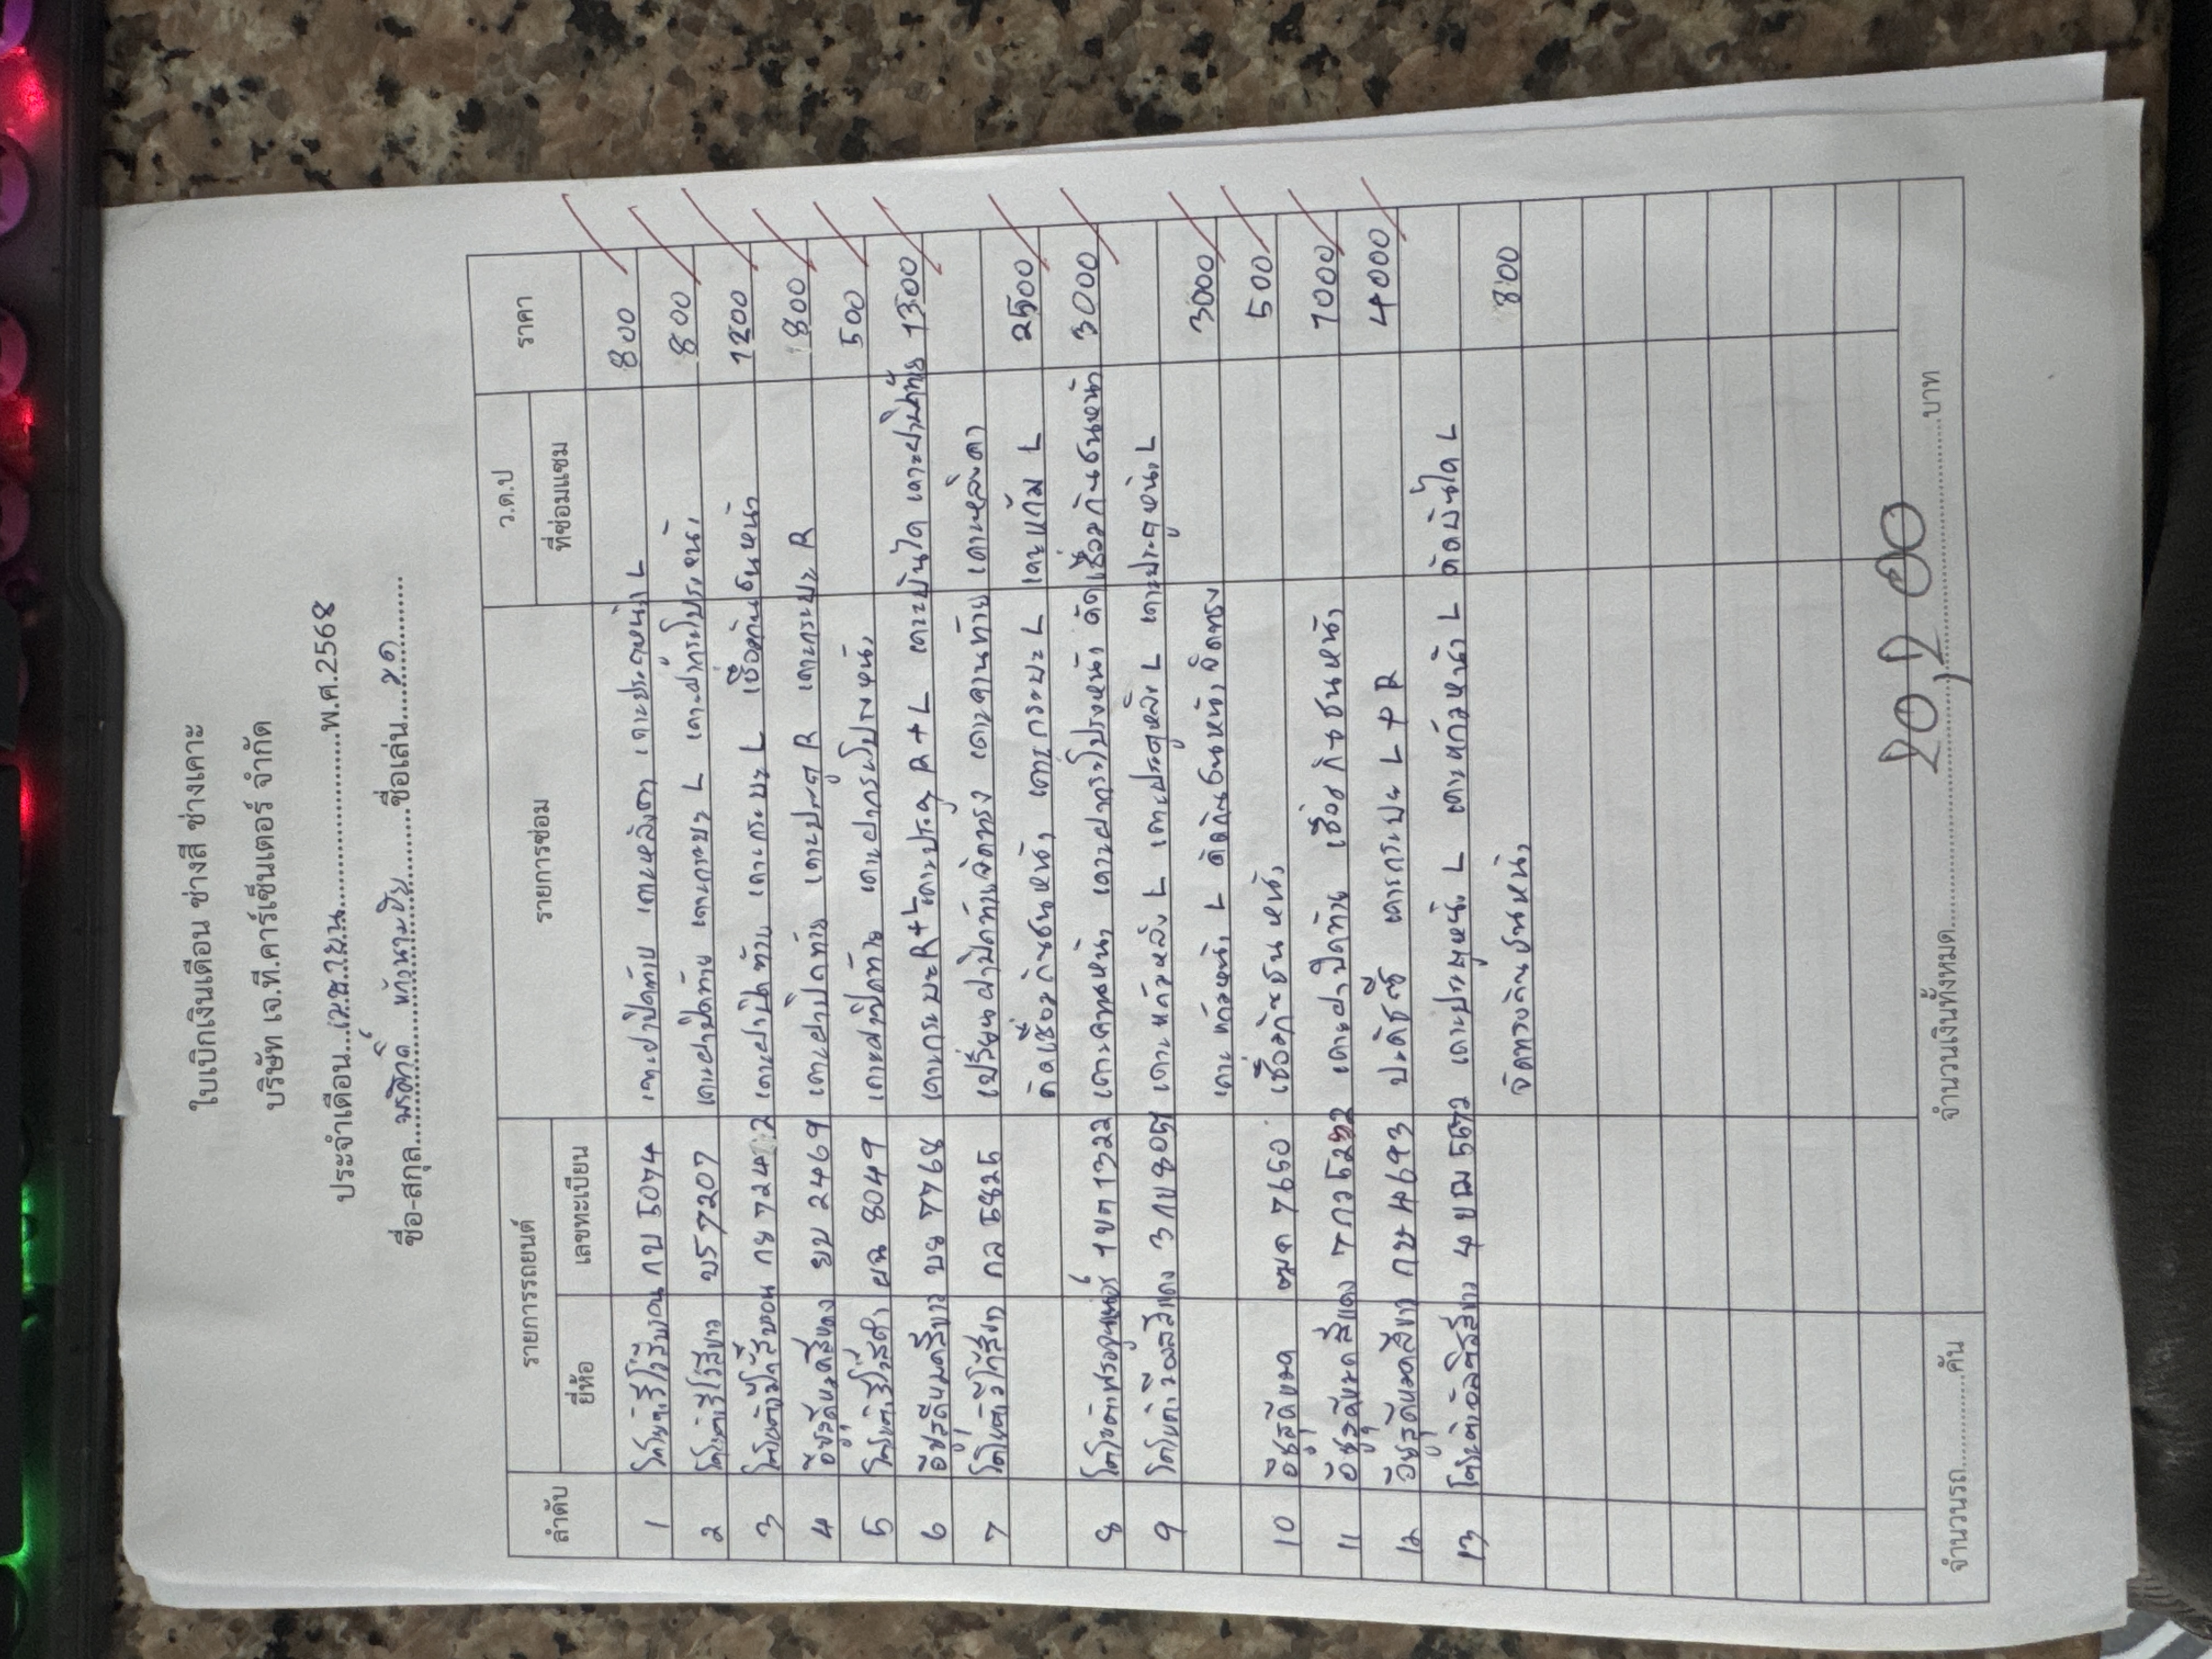 ใบเบิกเงินเดือน ช่างสี ช่างเคาะ
บริษัท เจ.ที.คาร์เซ็นเตอร์ จำกัด
ประจำเดือน...เมษายน...พ.ศ.2568
ชื่อ-สกุล...ชื่อเล่น...
ลำดับ รายการรถยนต์ รายการซ่อม ว.ด.ป ราคา
ยี่ห้อ เลขทะเบียน ที่ซ่อมแซม
1 กบ 5074 เคาะฝาปิดท้าย เคาะหลังคา เคาะประตูหน้า L 800
2 โตโยต้ารีโว่สีขาว บร 7207 เคาะฝาปิดท้าย เคาะกระบะ L เคาะฝากระโปรงหน้า 800
3 กย 724 2 เคาะฝาปิดท้าย เคาะกระบะ L เชื่อมกันชนหน้า 1200
4 ยบ 2469 เคาะฝาปิดท้าย เคาะประตู R เคาะกระบะ R 800
5 โตโยต้ารีโว่สีดำ ผฉ 8049 เคาะฝาปิดท้าย เคาะฝากระโปรงหน้า 500
6 อีซูซุดีแมคสีขาว บย 7768 เคาะกระบะ R+L เคาะประตู R + L เคาะบันได เคาะฝาปิดท้าย 1300
7 โตโยต้าวีโก้สีขาว กล 5825 เปลี่ยนฝาปิดท้ายจัดทรง เคาะคานท้าย เคาะหลังคา
ตัดเชื่อมกันชนหน้า เคาะกระบะ L เคาะแก้ม L 2500
8 โตโยต้าฟรอจูนเนอร์ 1ขก 1322 เคาะคานหน้า เคาะฝากระโปรงหน้า ตัดเชื่อมกันชนหน้า 3000
9 3กบ 8057 เคาะแก้มหลัง L เคาะประตูหลัง L เคาะประตูหน้า L
เคาะแก้มหน้า L ตัดกันชนหน้าจัดทรง 3000
10 อีซูซุดีแมค ฒค 7650 เชื่อมกันชนหน้า 500
11 อีซูซุดีแมคสีแดง 7กว 5252 เคาะฝาปิดท้าย เชื่อมกันชนหน้า 1000
12 อีซูซุดีแมคสีขาว กษ 4693 เคาะกระบะ L + R 4000
13 โตโยต้าอัลติสสีขาว 4ขฌ 5672 เคาะประตูหน้า L เคาะแก้มหน้า L ตัดบันได L
จัดทรงกันชนหน้า 800
จำนวนรถ...คัน จำนวนเงินทั้งหมด...20,200...บาท